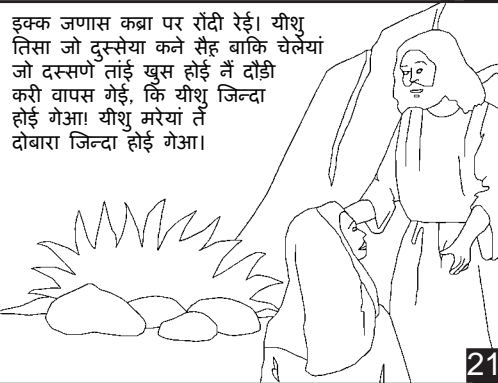 इक्क जणास कब्रा पर रोंदी रेई। यीशु
तिसा जो दुस्सेया कने सैह़ बाकि चेलेयां
जो दस्सणे तांई खुस होई नैं दौड़ी
करी वापस गेई, कि यीशु जिन्दा
होई गेआ! यीशु मरेयां ते
दोबारा जिन्दा होई गेआ।
21